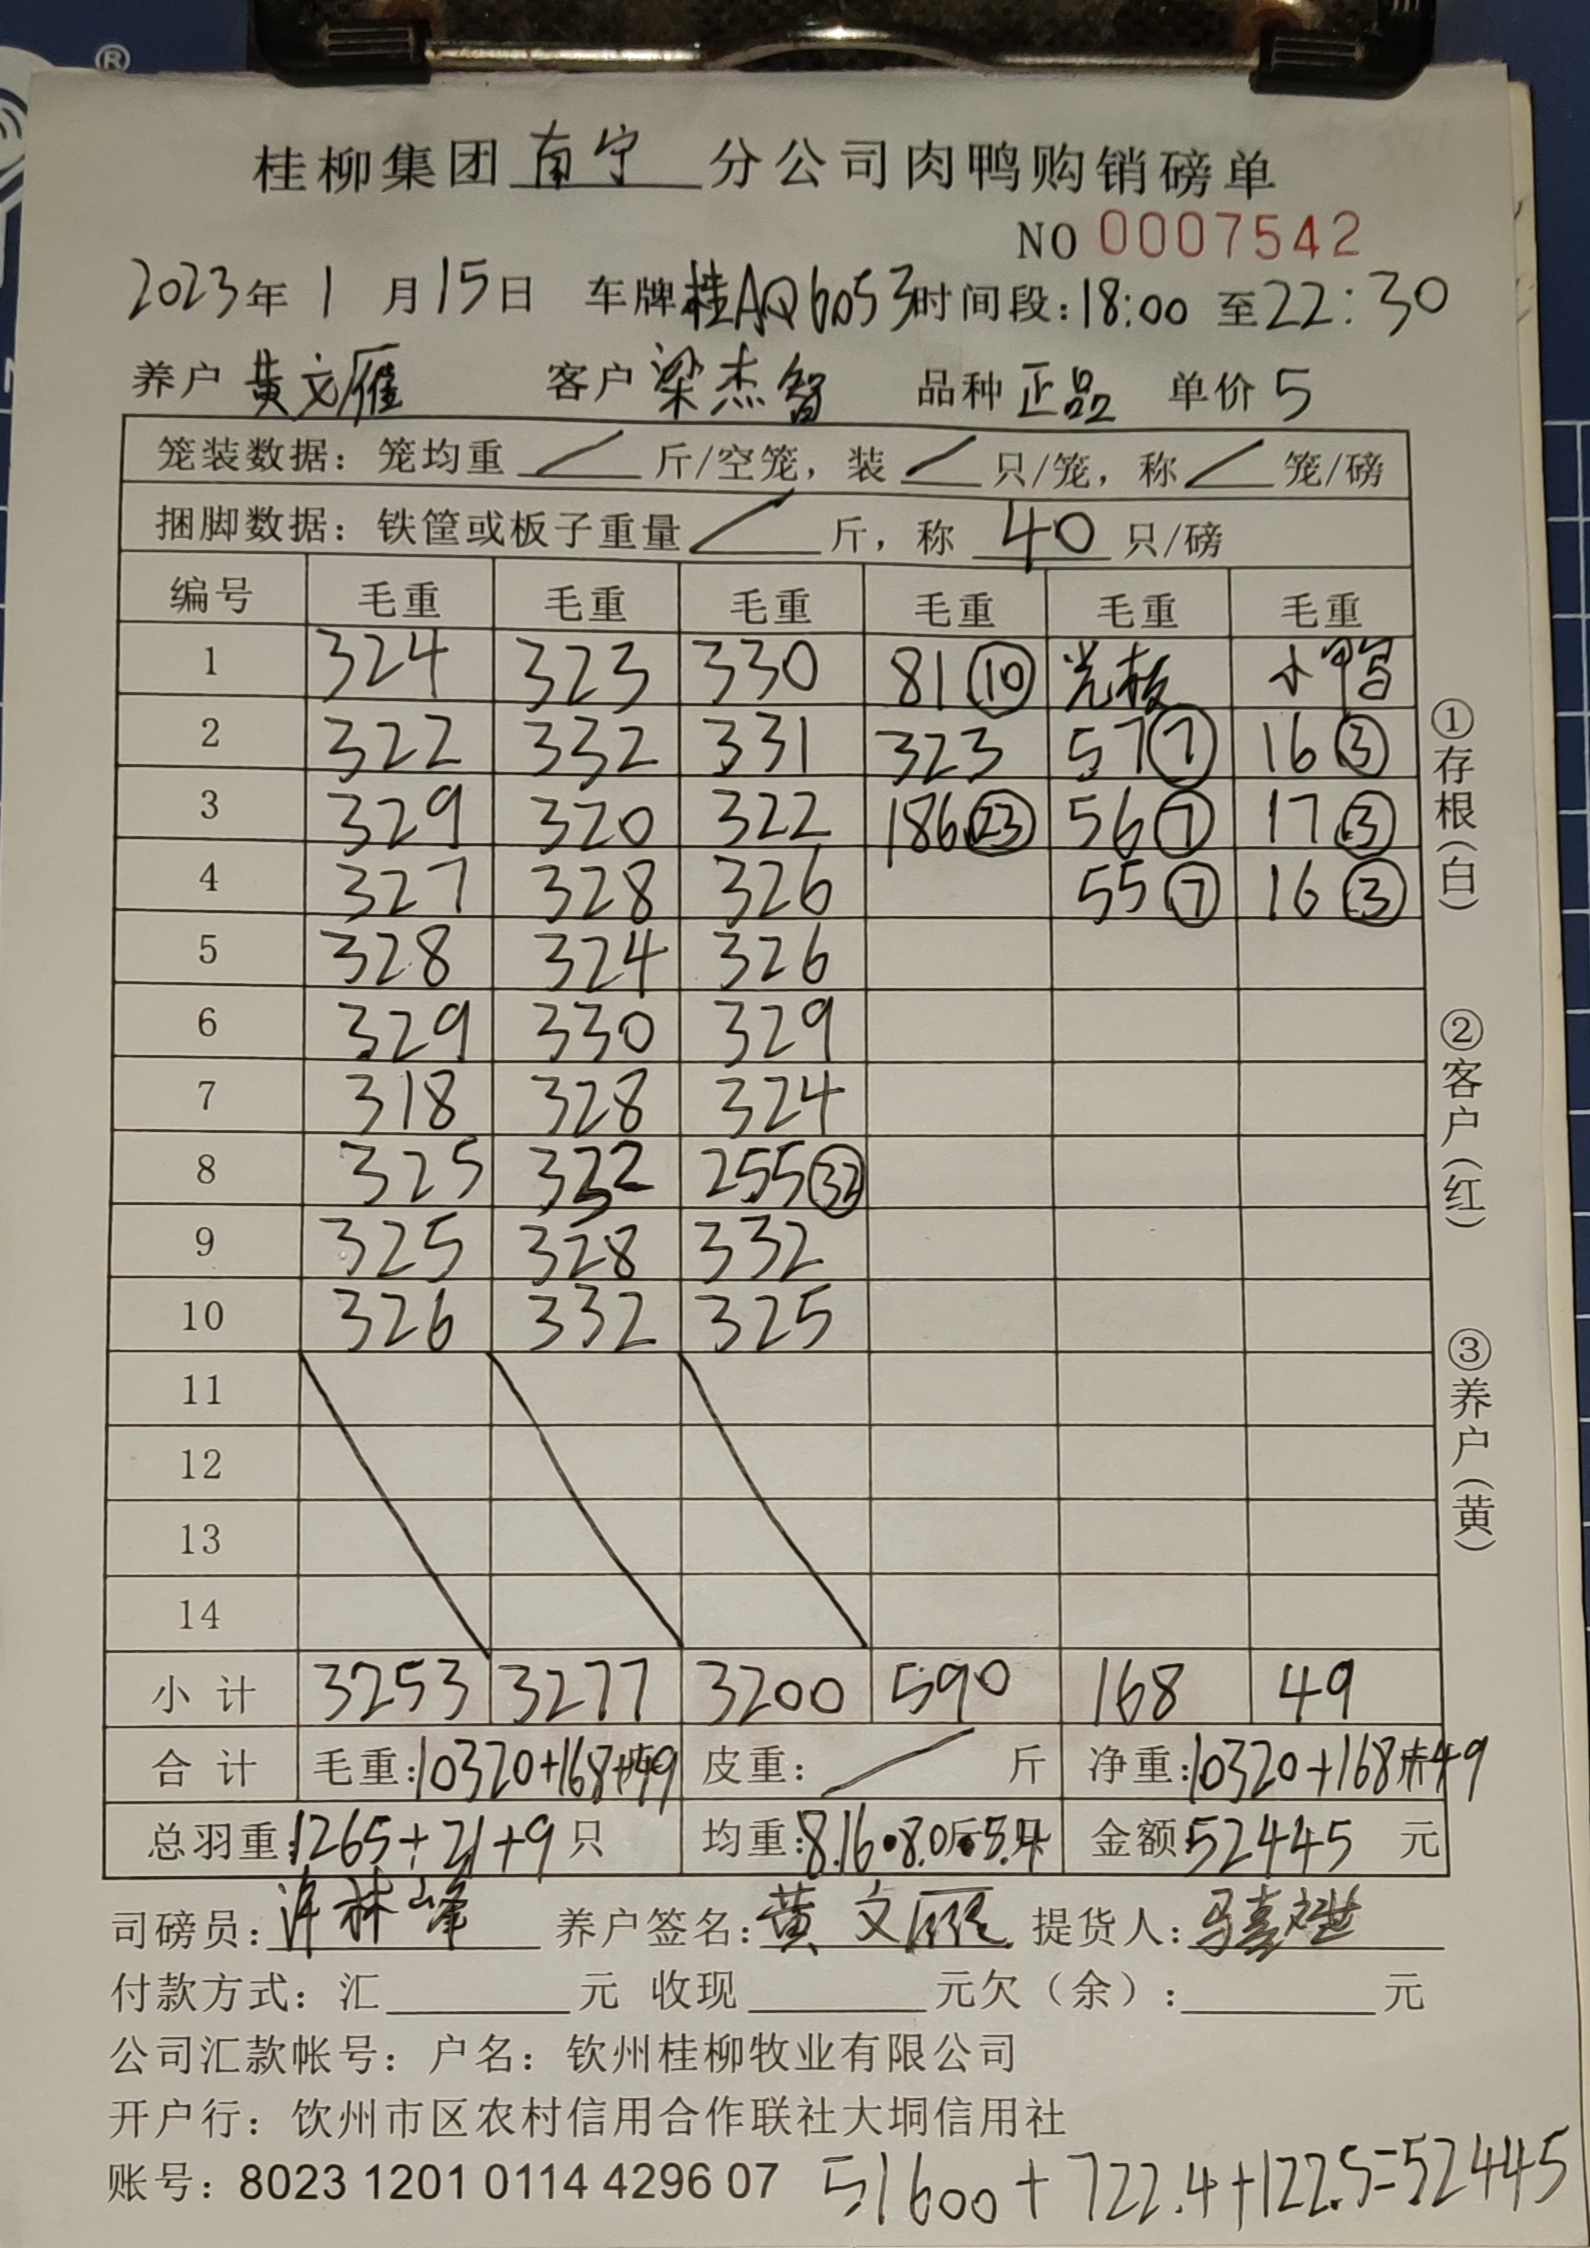 ®
桂柳集团 南宁 分公司肉鸭购销磅单
NO 0007542
2023年 1 月 15日 车牌桂AQ6053 时间段:18:00 至22:30
养户 黄文雁 客户 梁杰智 品种 正品 单价 5
笼装数据：笼均重 / 斤/空笼，装 / 只/笼，称 / 笼/磅
捆脚数据：铁筐或板子重量 / 斤，称 40 只/磅
编号 毛重 毛重 毛重 毛重 毛重 毛重
1 324 323 330 81⑩ 光板 小鸭
2 322 332 331 323 57⑦ 16③
3 329 320 322 186㉓ 56⑦ 17③
4 327 328 326 55⑦ 16③
5 328 324 326
6 329 330 329
7 318 328 324
8 325 332 255㉜
9 325 328 332
10 326 332 325
11
12
13
14
小计 3253 3277 3200 590 168 49
合计 毛重:10320+168+49 皮重: / 斤 净重:10320+168+49
总羽重:1265+21+9只 均重:8.16•8.0斤•5.4 金额52445 元
司磅员: 许林峰 养户签名: 黄文雁 提货人:
付款方式：汇 元 收现 元欠（余）: 元
公司汇款帐号：户名：钦州桂柳牧业有限公司
开户行：饮州市区农村信用合作联社大垌信用社
账号：8023 1201 0114 4296 07 51600+722.4+122.5=52445
①存根（白）
②客户（红）
③养户（黄）